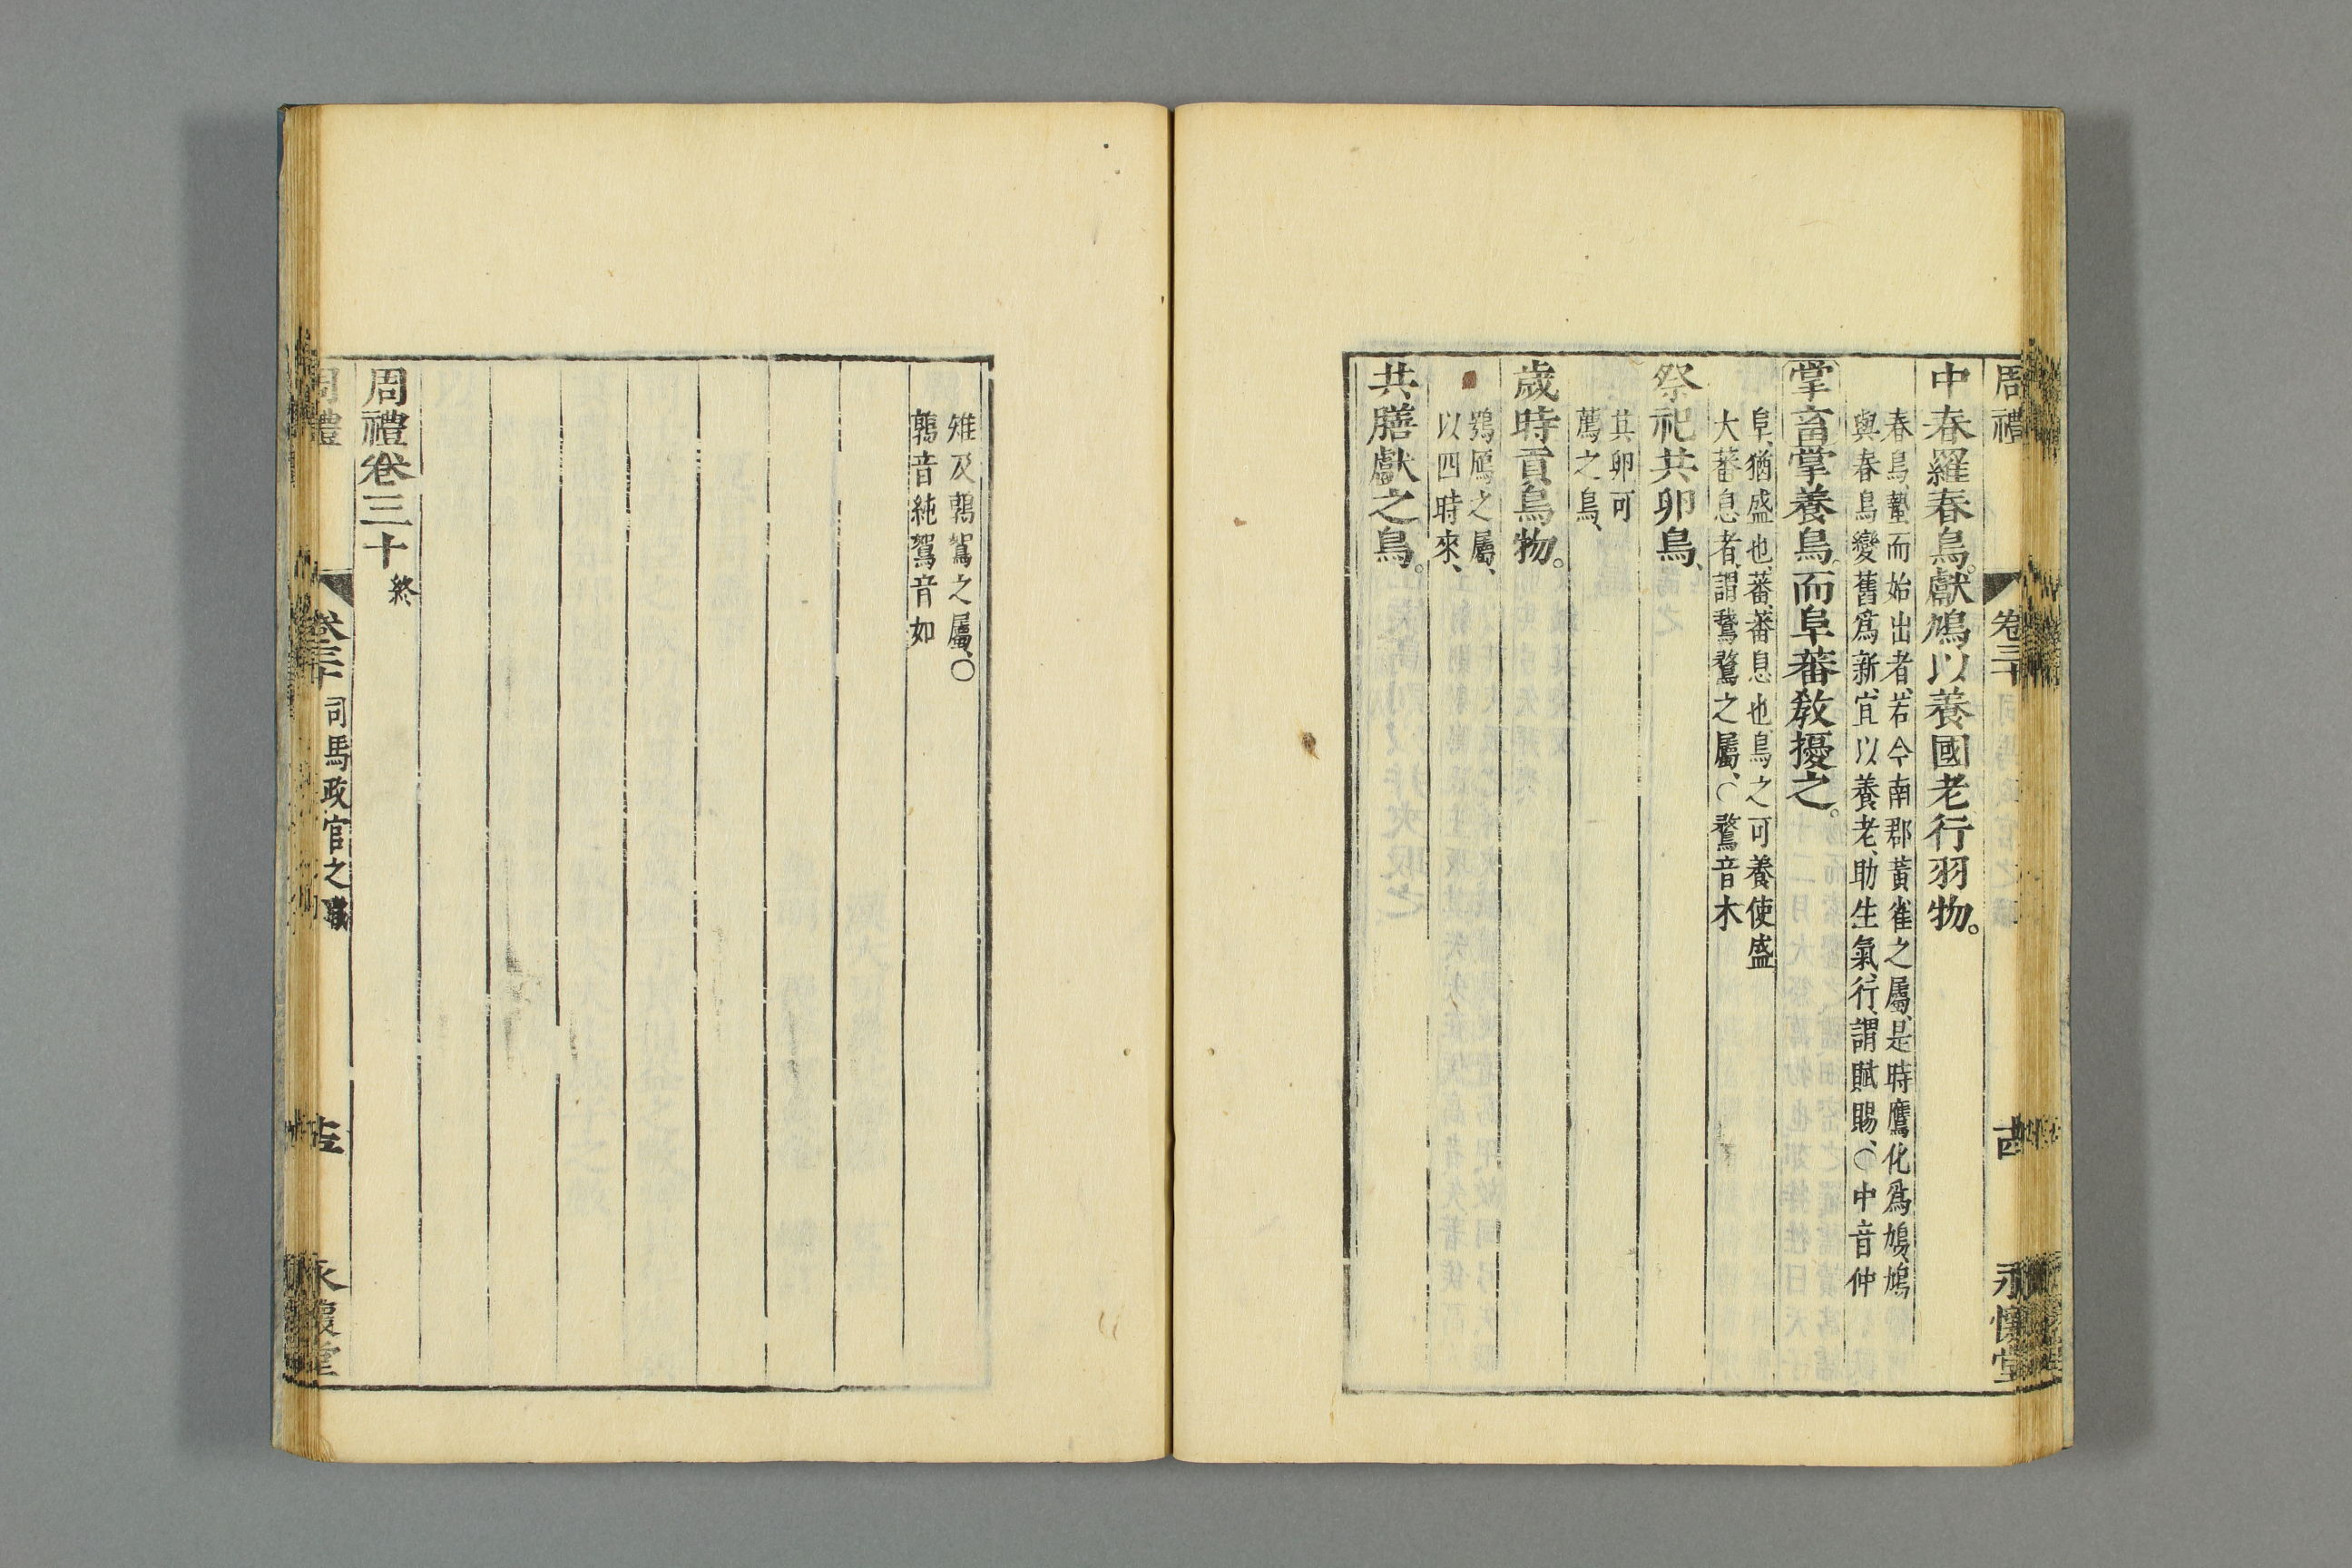 周禮
卷三十
古
永懷堂
中春羅春鳥。獻鳩以養國老行羽物。
春鳥、蟄而始出者、若今南郡黃雀之屬、是時鷹化爲鳩、鳩
與春鳥變舊爲新、宜以養老、助生氣、行、謂賦賜、〇中音仲
掌畜掌養鳥。而阜蕃教擾之。
阜、猶盛也、蕃、蕃息也、鳥之可養使盛
大蕃息者、謂鵞鶩之屬、〇鶩音木
祭祀共卵鳥、
其卵可
薦之鳥、
歲時貢鳥物。
鴉鴈之屬、
以四時來、
共膳獻之鳥。
雉及鶉鴽之屬、〇
鶉音純鴽音如
周禮卷三十 終
周禮
卷三十
司馬政官之職
永懷堂